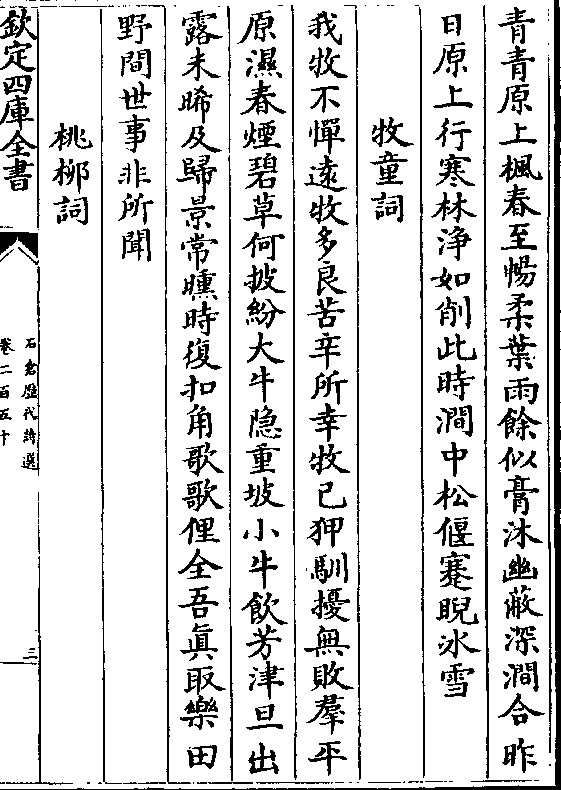 青青原上楓春至暢柔葉雨餘似膏沐幽蔽深澗合昨
日原上行寒林浄如削此時澗中松偃蹇睨冰雪
牧童詞
我牧不憚遠牧多良苦辛所幸牧已狎馴擾無敗羣平
原濕春煙碧草何披紛大牛隐重坡小牛飲芳津旦出
露未晞及歸景常曛時復扣角歌歌俚全吾眞取樂田
野間世事非所聞
桃栁詞
欽定四庫全書
石倉歴代詩選
卷二百五十
三